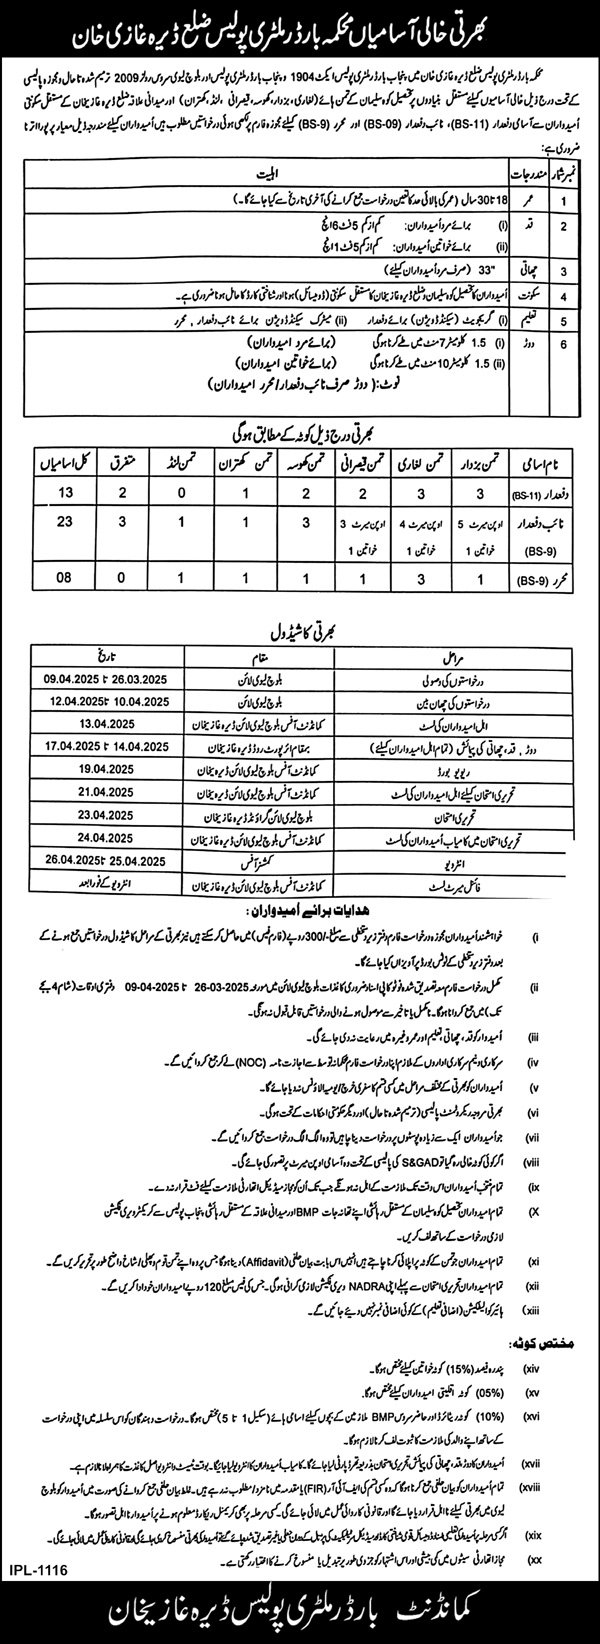 بھرتی خالی آسامیاں محکمہ بارڈر ملٹری پولیس ضلع ڈیرہ غازی خان
محکمہ بارڈر ملٹری پولیس ضلع ڈیرہ غازی خان میں پنجاب بارڈر ملٹری پولیس ایکٹ 1904 و پنجاب بارڈر ملٹری پولیس اور بلوچ لیوی سروس رولز 2009 ترمیم شدہ تا حال و مجوزہ پالیسی
کے تحت درج ذیل خالی آسامیوں کیلئے مستقل بنیادوں پر تحصیل کوہ سلیمان کے تمن ہائے (لغاری، بزدار، کھوسہ، قیصرانی، لنڈ، کھتران) اور میدانی علاقہ ضلع ڈیرہ غازیخان کے مستقل سکونتی
اُمیدواران سے آسامی دفعدار (BS-11)، نائب دفعدار (BS-09) اور محرر (BS-9) کیلئے مجوزہ فارم پر لکھی ہوئی درخواستیں مطلوب ہیں اُمیدواران کیلئے مندرجہ ذیل معیار پر پورا اترنا
ضروری ہے:
نمبر شمار مندرجات اہلیت
1 عمر 18 تا 30 سال (عمر کی بالائی حد کا تعین درخواست جمع کرانے کی آخری تاریخ سے کیا جائے گا۔)
2 قد (i) برائے مرد اُمیدواران: کم از کم 5 فٹ 6 انچ
(ii) برائے خواتین اُمیدواران: کم از کم 5 فٹ 1 انچ
3 چھاتی "33 (صرف مرد اُمیدواران کیلئے)
4 سکونت اُمیدواران کا تحصیل کوہ سلیمان و ضلع ڈیرہ غازیخان کا مستقل سکونتی (ڈومیسائل) ہونا اور شناختی کارڈ کا حامل ہونا ضروری ہے۔
5 تعلیم (i) گریجویٹ (سیکنڈ ڈویژن) برائے دفعدار (ii) میٹرک سیکنڈ ڈویژن برائے نائب دفعدار، محرر
6 دوڑ (i) 1.5 کلومیٹر 7 منٹ میں طے کرنا ہوگی (برائے مرد امیدواران)
(ii) 1.5 کلومیٹر 10 منٹ میں طے کرنا ہوگی (برائے خواتین امیدواران)
نوٹ: (دوڑ صرف نائب دفعدار/محرر امیدواران)
بھرتی درج ذیل کوٹہ کے مطابق ہوگی
نام اسامی تمن بزدار تمن لغاری تمن قیصرانی تمن کھوسہ تمن کھتران تمن لنڈ متفرق کل اسامیاں
دفعدار (BS-11) 3 3 2 2 1 0 2 13
نائب دفعدار (BS-9) اوپن میرٹ 5 خواتین 1 اوپن میرٹ 4 خواتین 1 اوپن میرٹ 3 خواتین 1 3 1 1 3 23
محرر (BS-9) 1 3 1 1 1 1 0 08
بھرتی کا شیڈول
مراحل مقام تاریخ
درخواستوں کی وصولی بلوچ لیوی لائن 26.03.2025 تا 09.04.2025
درخواستوں کی چھان بین بلوچ لیوی لائن 10.04.2025 تا 12.04.2025
اہل امیدواران کی لسٹ کمانڈنٹ آفس بلوچ لیوی لائن ڈیرہ غازیخان 13.04.2025
دوڑ، قد، چھاتی کی پیمائش (تمام اہل امیدواران کیلئے) بمقام ائرپورٹ روڈ ڈیرہ غازیخان 14.04.2025 تا 17.04.2025
ریویو بورڈ کمانڈنٹ آفس بلوچ لیوی لائن ڈیرہ غازیخان 19.04.2025
تحریری امتحان کیلئے اہل امیدواران کی لسٹ کمانڈنٹ آفس بلوچ لیوی لائن ڈیرہ غازیخان 21.04.2025
تحریری امتحان بلوچ لیوی لائن گراؤنڈ ڈیرہ غازیخان 23.04.2025
تحریری امتحان میں کامیاب اُمیدواران کی لسٹ کمانڈنٹ آفس بلوچ لیوی لائن ڈیرہ غازیخان 24.04.2025
انٹرویو کمشنر آفس 25.04.2025 تا 26.04.2025
فائنل میرٹ لسٹ کمانڈنٹ آفس بلوچ لیوی لائن ڈیرہ غازیخان انٹرویو کے فوراً بعد
ھدایات برائے اُمیدواران:
(i خواہشمند اُمیدواران مجوزہ درخواست فارم دفتر زیر دستخطی سے مبلغ -/300 روپے (فارم فیس) میں حاصل کر سکتے ہیں نیز بھرتی کے مراحل کا شیڈول درخواستیں جمع ہونے کے
بعد دفتر زیر دستخطی کے نوٹس بورڈ پر آویزاں کیا جائے گا۔
(ii مکمل درخواست فارم معہ تصدیق شدہ فوٹو کاپی اسناد و ضروری کاغذات بلوچ لیوی لائن میں مورخہ 26-03-2025 تا 09-04-2025 دفتری اوقات (شام 4 بجے
تک) میں جمع کروانا ہوگا۔ نامکمل یا تاخیر سے موصول ہونے والی درخواستیں قابل قبول نہ ہونگی۔
(iii اُمیدوار کو قد، چھاتی، تعلیم اور عمر وغیرہ میں رعایت نہ دی جائے گی۔
(iv سرکاری و نیم سرکاری اداروں کے ملازم اپنا درخواست فارم محکمانہ توسط سے اجازت نامہ (NOC) لے کر جمع کروائیں گے۔
(v اُمیدواران کو بھرتی کے مختلف مراحل میں کسی قسم کا سفری خرچ/یومیہ الاؤنس نہ دیا جائے گا۔
(vi بھرتی مروجہ ریکروٹمنٹ پالیسی (ترمیم شدہ تا حال) اور دیگر حکومتی احکامات کے تحت ہوگی۔
(vii جو اُمیدواران ایک سے زیادہ پوسٹوں پر درخواست دینا چاہیں تو وہ الگ الگ درخواست جمع کروائیں گے۔
(viii اگر کوئی کوٹہ خالی رہ گیا تو S&GAD کی پالیسی کے تحت وہ آسامی اوپن میرٹ پر تصور کی جائے گی۔
(ix تمام منتخب اُمیدواران اس وقت تک ملازمت کے اہل نہ ہونگے جب تک اُن کو مجاز میڈیکل اتھارٹی ملازمت کیلئے فٹ قرار نہ دے۔
(X تمام اُمیدواران تحصیل کوہ سلیمان کے مستقل رہائشی اپنے تھانہ جات BMP اور میدانی علاقہ کے مستقل رہائشی پنجاب پولیس سے کریکٹر ویری فکیشن
لازمی درخواست کے ساتھ لف کریں۔
(xi تمام اُمیدواران جو تمن کے کوٹہ پر اپلائی کرنا چاہتے ہیں انہیں اس بابت بیان حلفی (Affidavit) دینا ہوگا جس پر وہ اپنے تمن قوم و پھلی/شاخ واضح طور پر تحریر کریں گے۔
(xii تمام اُمیدواران تحریری امتحان سے پہلے اپنی NADRA ویری فکیشن لازمی کرانی ہوگی۔ جس کی فیس مبلغ 120 روپے اُمیدواران خود ادا کریں گے۔
(xiii ہائیر کوالیفکیشن (اضافی تعلیم) کے کوئی اضافی نمبر نہیں دیئے جائیں گے۔
مختص کوٹہ:
(xiv پندرہ فیصد (15%) کوٹہ خواتین کیلئے مختص ہوگا۔
(xv (05%) کوٹہ اقلیتی اُمیدواران کیلئے مختص ہوگا۔
(xvi (10%) کوٹہ ریٹائرڈ اور حاضر سروس BMP ملازمین کے بچوں کیلئے اسامی ہائے (سکیل 1 تا 5) مختص ہوگا۔ درخواست دہندگان کو اس سلسلہ میں اپنی درخواست
کے ساتھ اپنے والد کی ملازمت کا ثبوت لف کرنا لازم ہوگا۔
(xvii اُمیدواران کا دوڑ، قد، چھاتی کی پیمائش تحریری امتحان بذریعہ تھرڈ پارٹی لیا جائے گا۔ کامیاب اُمیدواران کا انٹرویو لیا جائیگا۔ بوقت ٹیسٹ و انٹرویو اصل کاغذات کا ہمراہ لانا لازم ہے۔
(xviii تمام اُمیدواران کو بیان حلفی جمع کرانا ہوگا کہ وہ کسی قسم کی ایف آئی آر (FIR) یا مقدمہ میں نامزد یا مطلوب نہ رہے ہیں۔ غلط بیان حلفی جمع کروانے کی صورت میں اُمیدوار کو بلوچ
لیوی میں بھرتی کیلئے نااہل قرار دیا جائے گا اور قانونی کاروائی عمل میں لائی جائے گی۔ کسی مرحلہ پر بھی کریمنل ریکارڈ معلوم ہونے پر امیدوار نااہل تصور ہوگا۔
(xix اگر کسی مرحلہ پر اُمیدوار کی تعلیمی اسناد، ڈومیسائل، قومی شناختی کارڈ اور میڈیکل سرٹیفکیٹ کی پڑتال کے دوران جعلی یا غیر تصدیق شدہ پائے گئے تو اُمیدوار کی بھرتی منسوخ کر دی جائے گی اور قانونی کاروائی عمل میں لائی جائے گی۔
(xx مجاز اتھارٹی سیٹوں میں کمی بیشی اور اس اشتہار کو جزوی طور پر تبدیل یا منسوخ کرنے کا اختیار رکھتی ہے۔
IPL-1116
کمانڈنٹ بارڈر ملٹری پولیس ڈیرہ غازیخان